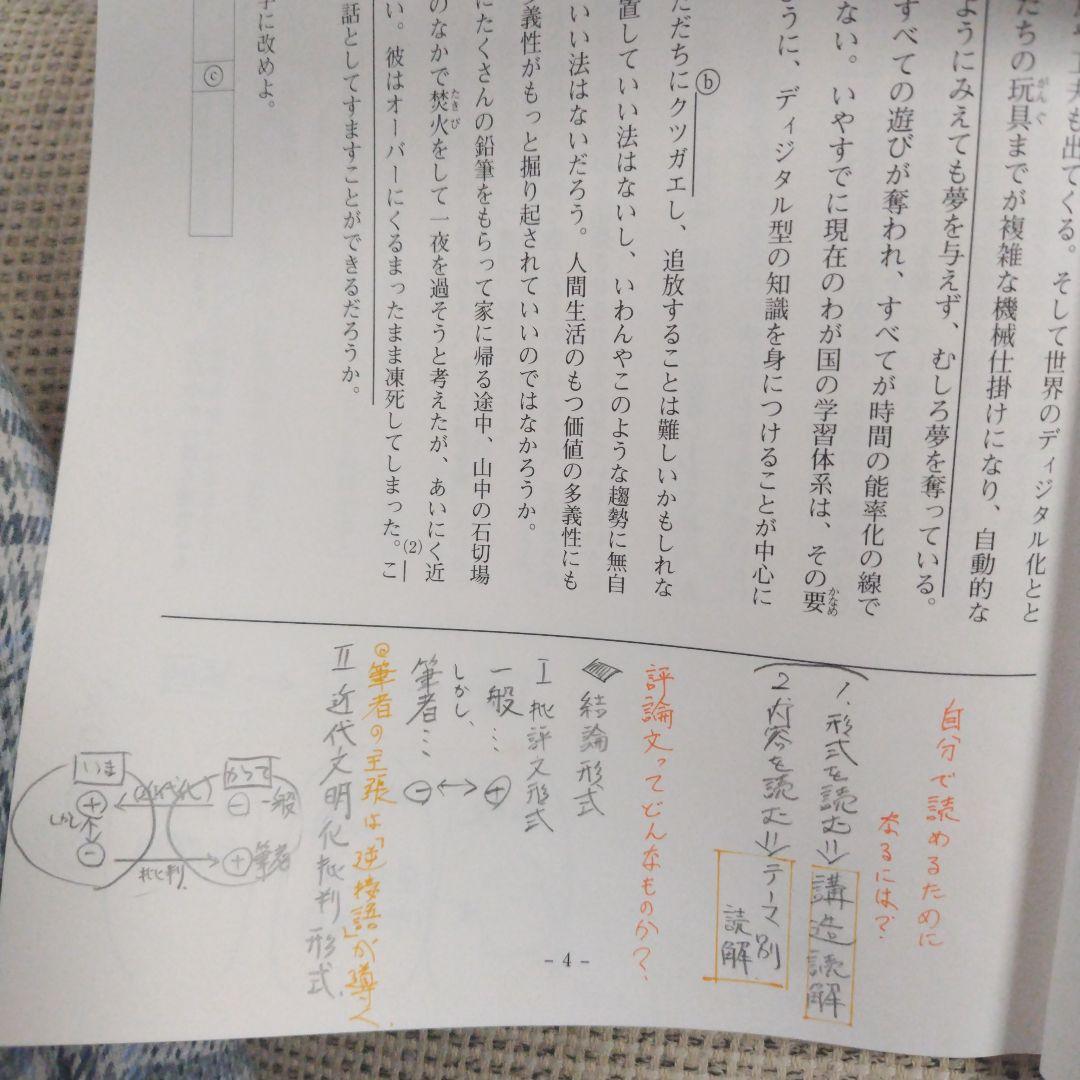 たちの玩具までが複雑な機械仕掛けになり、自動的な
ようにみえても夢を与えず、むしろ夢を奪っている。
すべての遊びが奪われ、すべてが時間の能率化の線で
ない。いやすでに現在のわが国の学習体系は、その要
ように、ディジタル型の知識を身につけることが中心に
ⓑ
ただちにクツガエし、追放することは難しいかもしれな
置していい法はないし、いわんやこのような趨勢に無自
いい法はないだろう。人間生活のもつ価値の多義性にも
義性がもっと掘り起されていいのではなかろうか。
にたくさんの鉛筆をもらって家に帰る途中、山中の石切場
のなかで焚火をして一夜を過そうと考えたが、あいにく近
い。彼はオーバーにくるまったまま凍死してしまった。(2)こ
話としてすますことができるだろうか。
ⓒ
字に改めよ。
自分で読めるために
なるには?
1. 形式を読む⇒講造読解
2. 内容を読む⇒テーマ別読解
評論文ってどんなものか?
結論形式
I 批評文形式
一般… ⊕
しかし、 ↔
筆者… ⊖
◎筆者の主張は「逆接語」が導く
II 近代文明化批判形式
かつて ⊖ 一般
⊕ 筆者
いま
⊕
⊖
批判
- 4 -